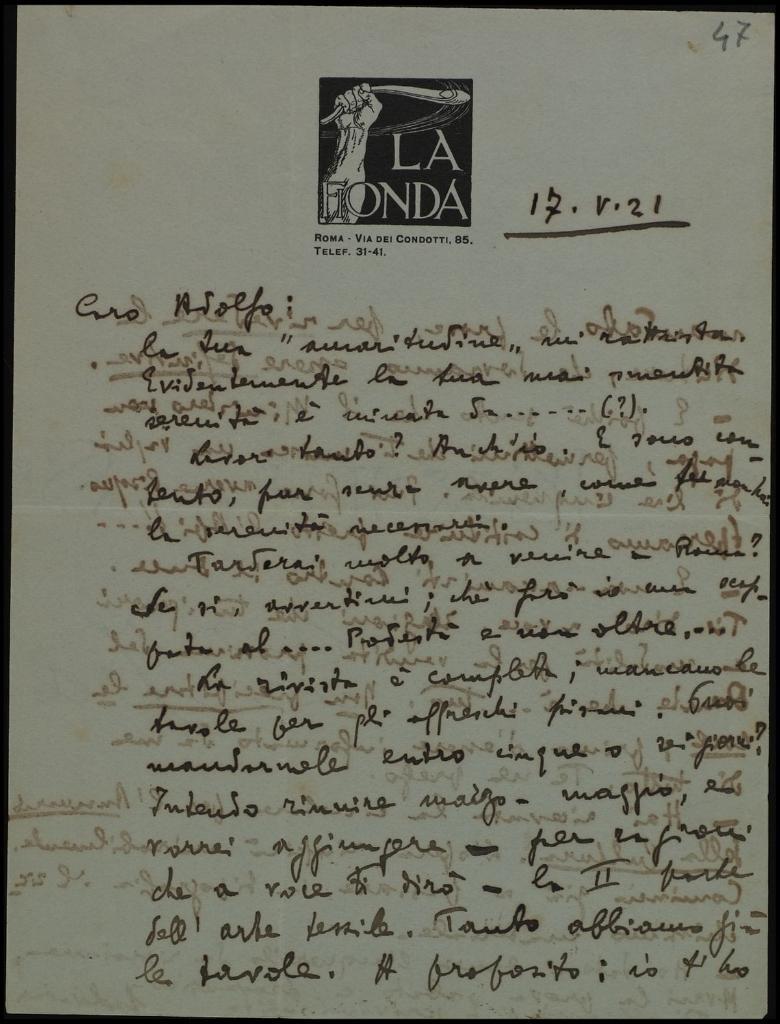 47
LA
FIONDA
ROMA - VIA DEI CONDOTTI, 85.
TELEF. 31-41.
17. V. 21
Caro Adolfo:
la tua "amaritudine" mi rattrista.
Evidentemente la tua mai smentita
serenità è minata da....... (?).
Lavori tanto? Anch'io. E sono con-
tento, pur senza avere, come
la serenità necessaria.
Tarderai molto a venire a Roma?
Se sì, avvertimi; chè farò io una scap-
pata al .... Podestà e non oltre....
La rivista è completa; mancano le
tavole per gli affreschi pisani. Puoi
mandarmele entro cinque o sei giorni?
Intendo riunire marzo - maggio, ed
vorrei aggiungere - per ragioni
che a voce ti dirò - la II parte
dell'arte tessile. Tanto abbiamo già
le tavole. A proposito: io t'ho